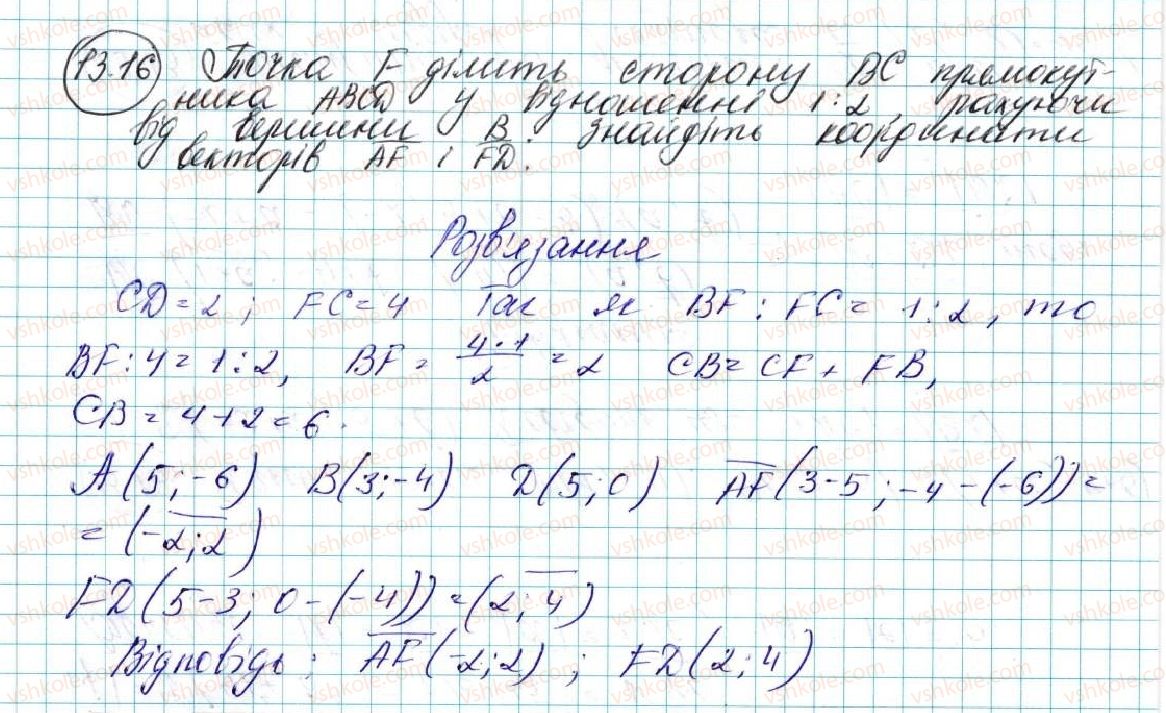 13.16 Точка F ділить сторону BC прямокут-
ника ABCD у відношенні 1:2, рахуючи
від вершини B. Знайдіть координати
векторів AF і FD.
Розв'язання
CD = 2; FC = 4 Так як BF : FC = 1 : 2, то
BF : 4 = 1 : 2, BF = 4·1/2 = 2 CB = CF + FB,
CB = 4 + 2 = 6.
A(5;-6) B(3;-4) D(5;0) AF(3-5; -4-(-6)) =
= (-2;2)
FD(5-3; 0-(-4)) = (2;4)
Відповідь: AF(-2;2); FD(2;4)